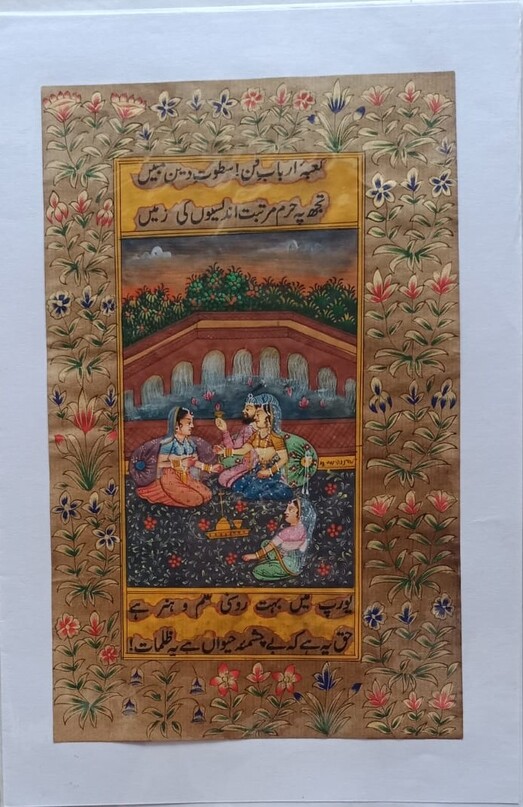 کعبۂ ارباب فن! سطوت دین مبیں
تجھ پہ حرم مرتبت اندلسیوں کی زمیں
یورپ میں بہت روشنی علم و ہنر ہے
حق یہ ہے کہ بے چشمۂ حیواں ہے یہ ظلمات!